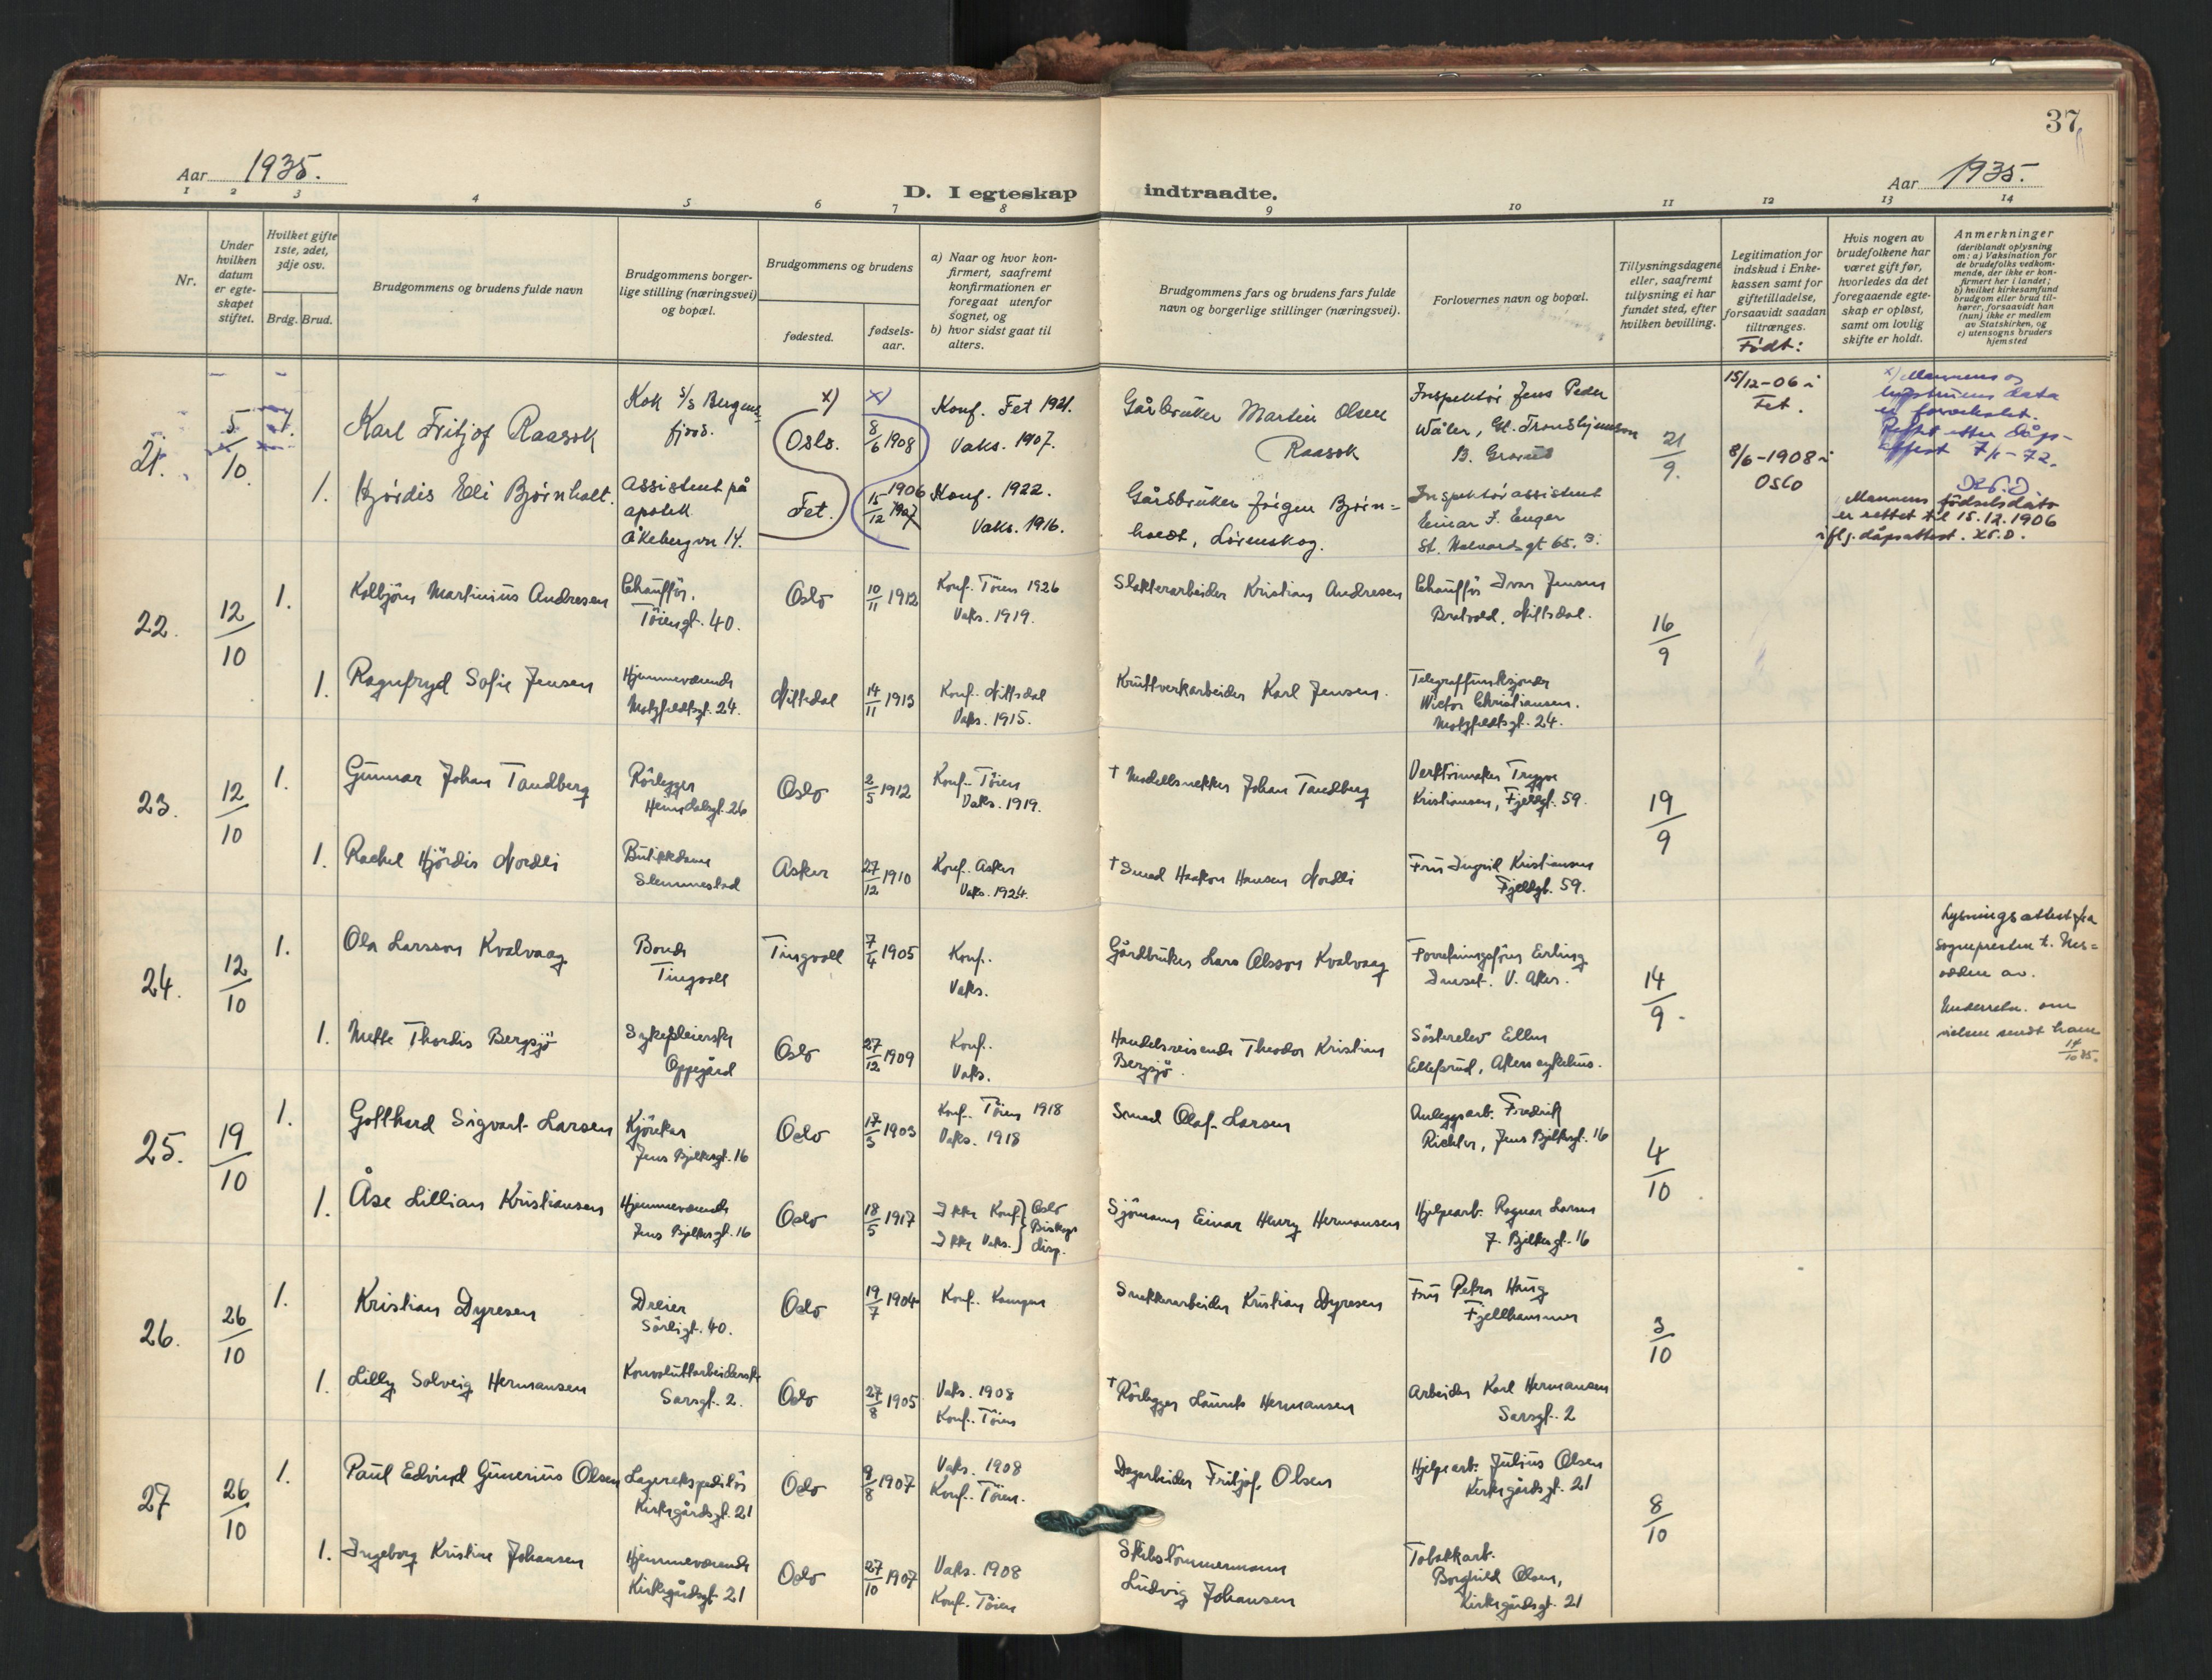 37
Aar 1935.
D. I egteskap indtraadte.
Aar 1935.
1 2 3 4 5 6 7 8 9 10 11 12 13 14
Nr.
Under hvilken datum er egteskapet stiftet.
Hvilket gifte 1ste, 2det, 3dje osv.
Brdg. Brud.
Brudgommens og brudens fulde navn
Brudgommens borgerlige stilling (næringsvei) og bopæl.
Brudgommens og brudens
fødested.
fødselsaar.
a) Naar og hvor konfirmert, saafremt konfirmationen er foregaat utenfor sognet, og
b) hvor sidst gaat til alters.
Brudgommens fars og brudens fars fulde navn og borgerlige stillinger (næringsvei).
Forlovernes navn og bopæl.
Tillysningsdagene eller, saafremt tillysning ei har fundet sted, efter hvilken bevilling.
Legitimation for indskud i Enkekassen samt for giftetilladelse, forsaavidt saadan tiltrænges.
Født:
Hvis nogen av brudefolkene har været gift før, hvorledes da det foregaaende egteskap er opløst, samt om lovlig skifte er holdt.
Anmerkninger
(deriblandt oplysning om: a) Vaksination for de brudefolks vedkommende, der ikke er konfirmert her i landet;
b) hvilket kirkesamfund brudgom eller brud tilhører, forsaavidt han (hun) ikke er medlem av Statskirken, og
c) utensogns bruders hjemsted
21. 5/10 1.
Karl Fritjof Raasok
Kok S/S Bergensfjord.
x) Oslo.
x) 8/6 1908
Konf. Fet 1921.
Vaks. 1907.
Gårbruker Martin Olsen
Raasok
Inspektör Jens Peder
Wåler, Gl. Trondhjemsvn
21/9.
15/12-06 i
Fet.
x) Mannens og
data
er forvekslet.
Rettet etter dåpsattest
1. Hjördis Elli Bjørnholt.
Assistent på
apotek
Åkebergvn 14.
Fet.
15/12 1906 1907
Konf. 1922.
Vaks. 1916.
Gårdsbruker Jörgen Bjørnholdt, Lörenskog.
Inspektörassistent
Einar J. Enger
St. Halvardsgt 65.
8/6-1908 i
Oslo
Mannens fødselsdato
er rettet til 15.12.1906
iflg. dåpsattest.
22. 12/10 1.
Kolbjörn Martinius Andresen
Chaufför.
Töiengt. 40.
Oslo
10/11 1912
Konf. Töien 1926
Vaks. 1919.
Slakterarbeider Kristian Andresen
Chaufför Ivar Jensen
Bratvold, Nittedal.
16/9
1. Ragnfryd Sofie Jensen
Hjemmeværende
Motzfeldtsgt. 24.
Nittedal
14/11 1913
Konf. Nittedal
Vaks. 1915.
Kruttverkarbeider Karl Jensen.
Victor Christiansen.
Motzfeldtsgt. 24.
23. 12/10 1.
Gunnar Johan Tandberg
Rörlegger
Heimdalsgt. 26
Oslo
2/5 1912
Konf. Töien
Vaks. 1919.
† Modellsnekker Johan Tandberg
Verktöimaker Trygve
Kristiansen, Fjellgt. 59.
19/9
1. Rachel Hjördis Nordli
Butikkdame
Slemmestad
Asker
27/12 1910
Konf. Asker
Vaks. 1924.
† Smed Haakon Hansen Nordli
Fru Ingrid Kristiansen
Fjellgt. 59.
24. 12/10 1.
Ola Larsson Kvalvaag
Bonde
Tingvoll
Tingvoll
7/4 1905
Konf.
Vaks.
Gårdbruker Lars Olsson Kvalvaag
Forretningsförer Erling
Inset. V. Aker.
14/9.
Lysningsattest fra
sognepresten t. Nesodden av.
Underretn. om
vielsen sendt ham
14/10 35.
1. Mette Thordis Bergsjö
Sykepleierske
Oppegård
Oslo
27/12 1909
Konf.
Vaks.
Handelsreisende Theodor Kristian
Bergsjö.
Ellefsrud, Aker sykehus.
25. 19/10 1.
Gotthard Sigvart Larsen
Kjörekar
Jens Bjelkesgt. 16
Oslo
17/3 1903
Konf. Töien 1918
Vaks. 1918
Smed Olaf Larsen
Anleggsarb. Fredrik
Richter, Jens Bjelkesgt. 16
4/10
1. Åse Lillian Kristiansen
Hjemmeværende
Jens Bjelkesgt. 16
Oslo
18/5 1917
Ikke Konf. } Oslo
Ikke Vaks. } Biskops disp.
Sjömann Einar Henry Hermansen
Hjelpearb. Ragnar Larsen
J. Bjelkesgt. 16
26. 26/10 1.
Kristian Dyresen
Dreier
Sörligt. 40.
Oslo
19/7 1904
Konf. Kampen
Snekkerarbeider Kristian Dyresen
Fru Petra Haug
Fjellhammer
3/10
1. Lilly Solveig Hermansen
Konvoluttarbeiderske
Sarsgt. 2.
Oslo
27/8 1905
Vaks. 1908
Konf. Töien
† Rörlegger Laurits Hermansen
Arbeider Karl Hermansen
Sarsgt. 2
27 26/10 1.
Paul Edvind Gunerius Olsen
Lagerekspeditör
Kirkegårdsgt. 21
Oslo
9/8 1907
Vaks. 1908
Konf. Töien.
Dagarbeider Fritjof Olsen
Hjelpearb. Julius Olsen
Kirkegårdsgt. 21
8/10
1. Ingeborg Kristine Johansen
Hjemmeværende
Kirkegårdsgt. 21
Oslo
27/10 1907
Vaks. 1908
Konf. Töien
Skibstömmermann
Ludvig Johansen
Tobakkarb.
Borghild Olsen,
Kirkegårdsgt. 21